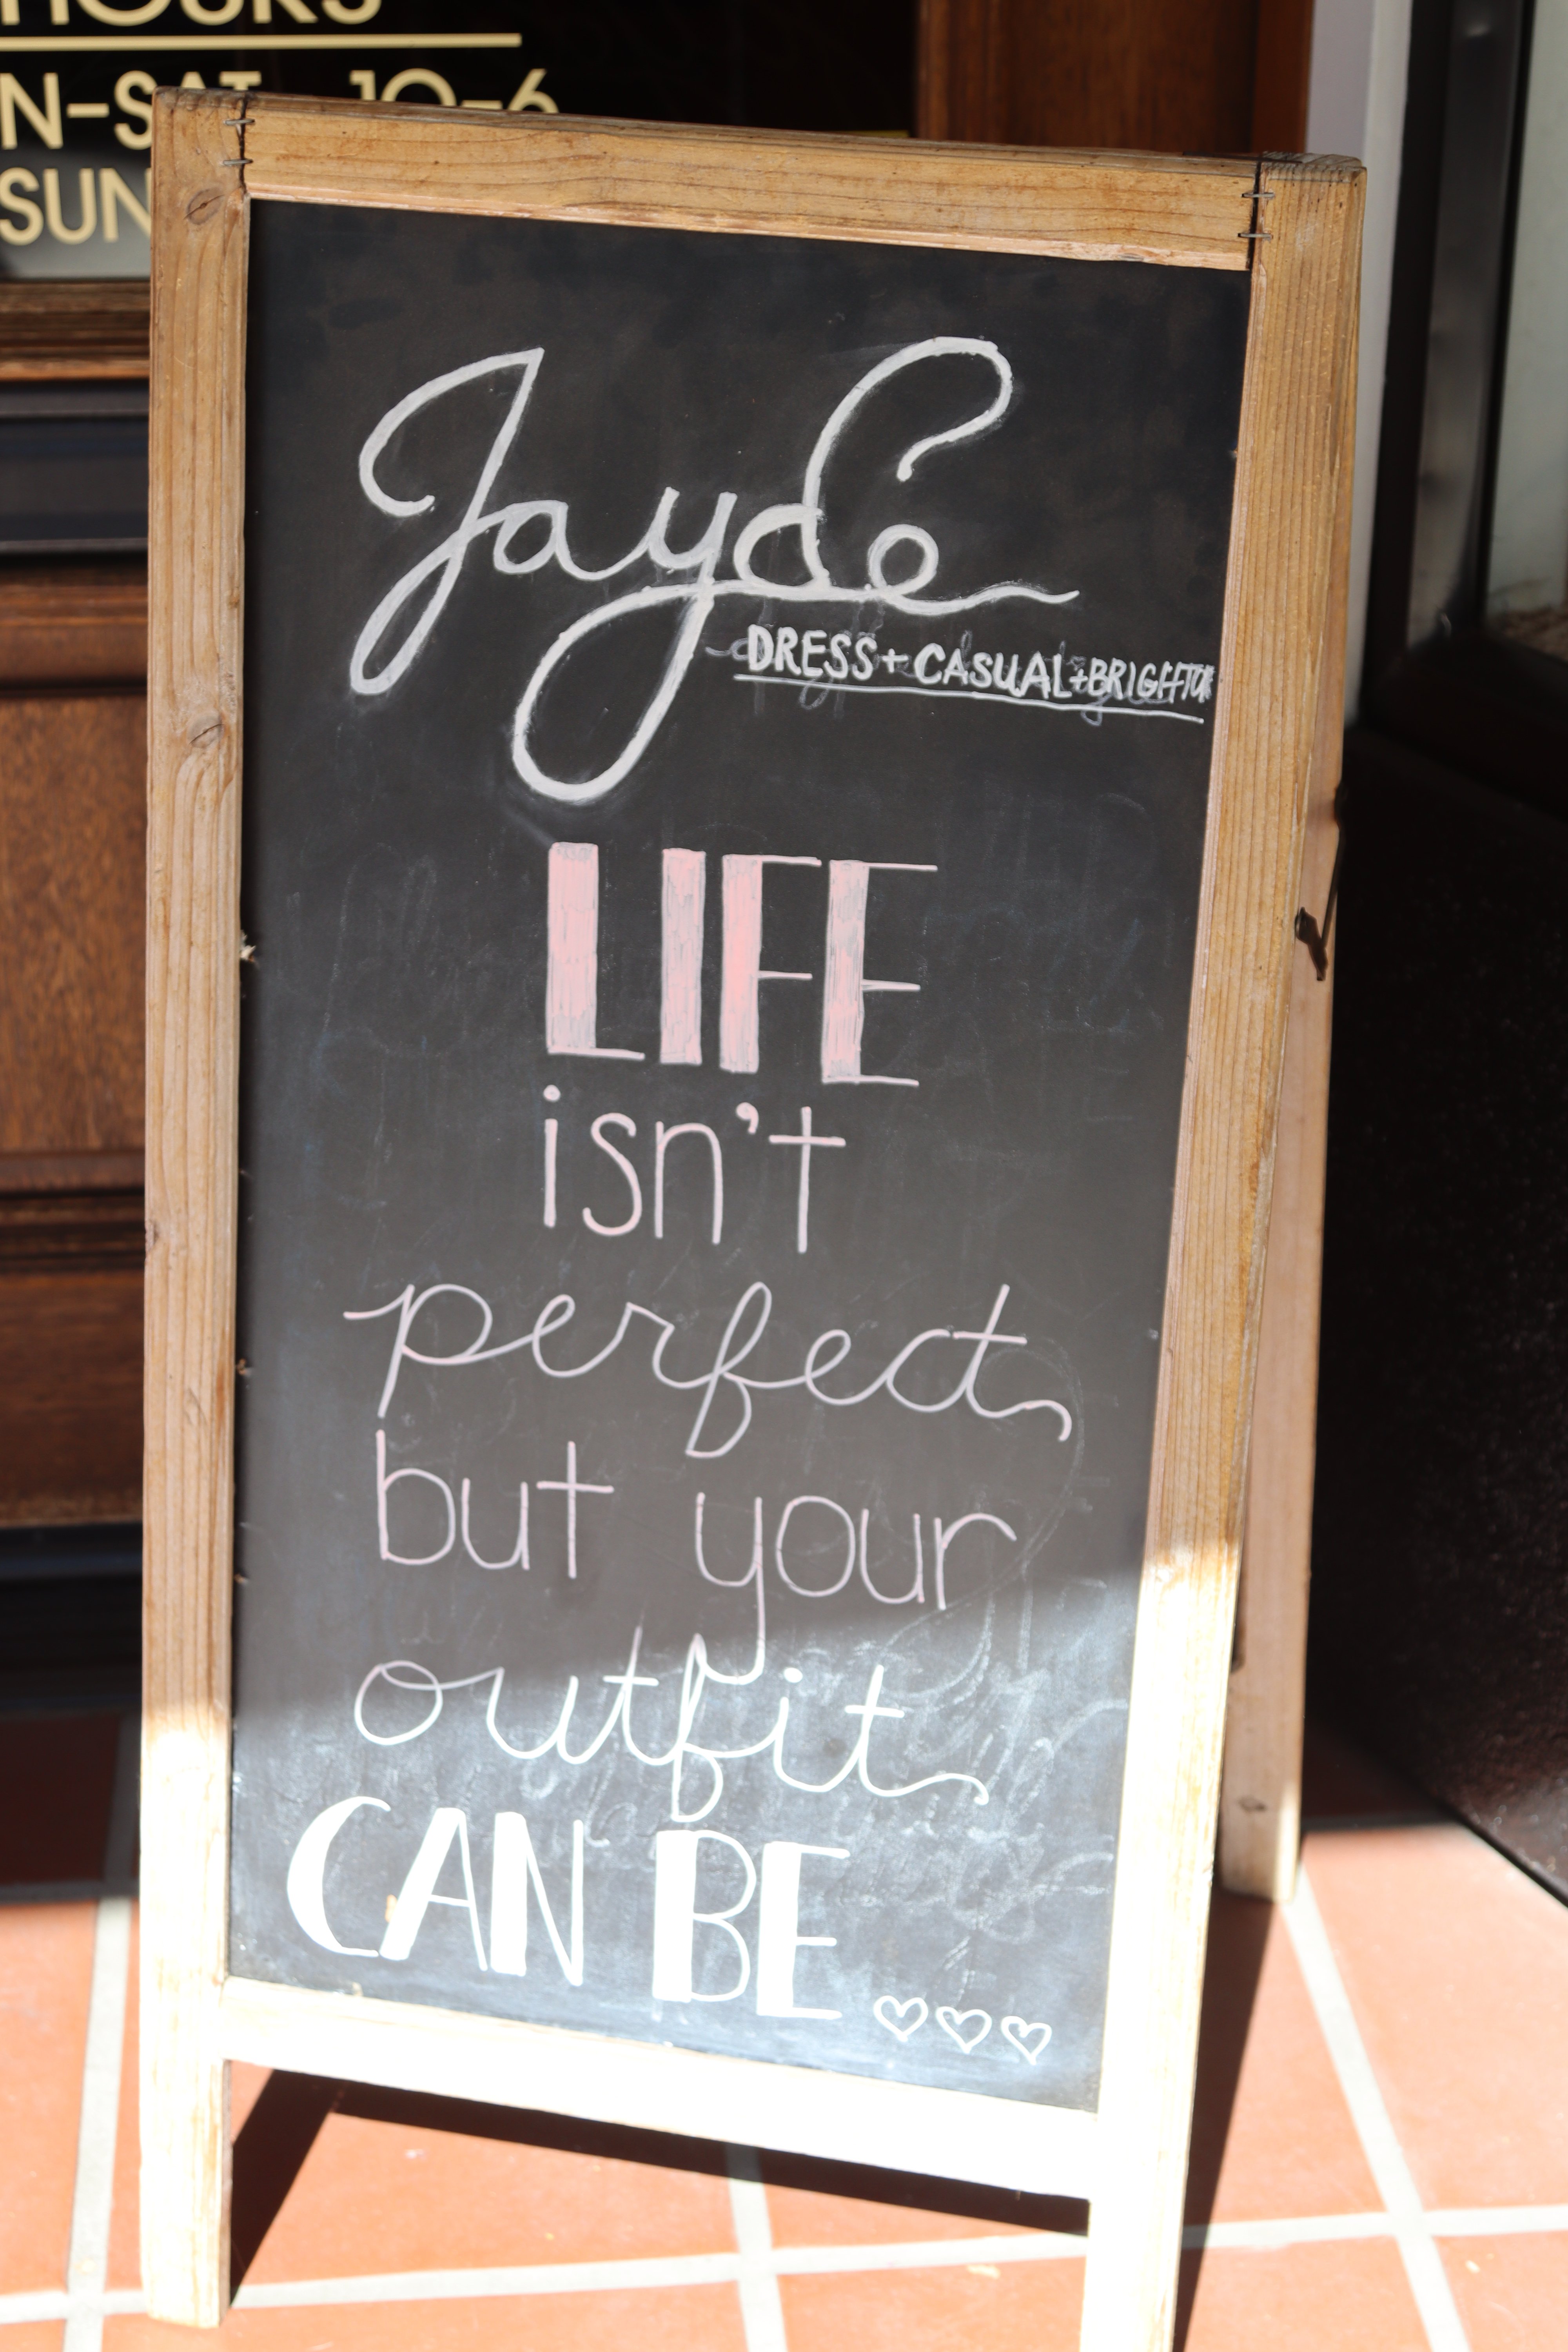 HOURS
N-SAT 10-6
SUN
Jayde
DRESS + CASUAL + BRIGHTON
LIFE
isn't
perfect
but your
outfit
CAN BE